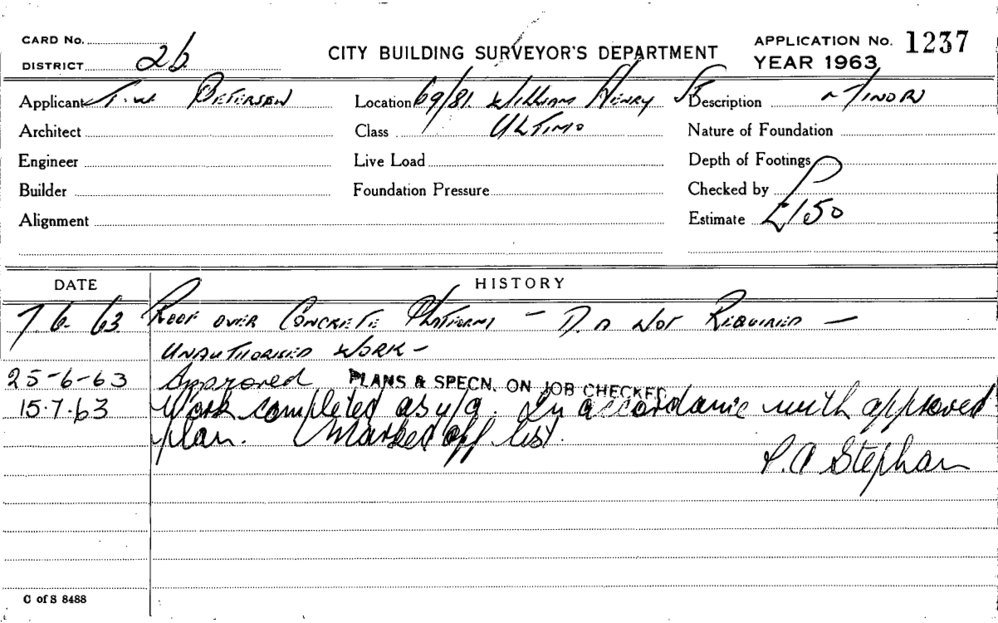 CARD No.
DISTRICT 2b
CITY BUILDING SURVEYOR'S DEPARTMENT
APPLICATION No. 1237
YEAR 1963
Applicant T.W. PETERSEN
Location 69/81 WILLIAM HENRY ST
Description MINOR
Architect
Class ULTIMO
Nature of Foundation
Engineer
Live Load
Depth of Footings
Builder
Foundation Pressure
Checked by
Alignment
Estimate £150
DATE
HISTORY
7 6- 63 ROOF OVER CONCRETE PLATFORM - D.A NOT REQUIRED -
UNAUTHORISED WORK -
25-6-63 Approved PLANS & SPECN. ON JOB CHECKED
15.7.63 Work completed as u/a. In accordance with approved
plan. Marked off list.
P.A Stephan
C of S 8488